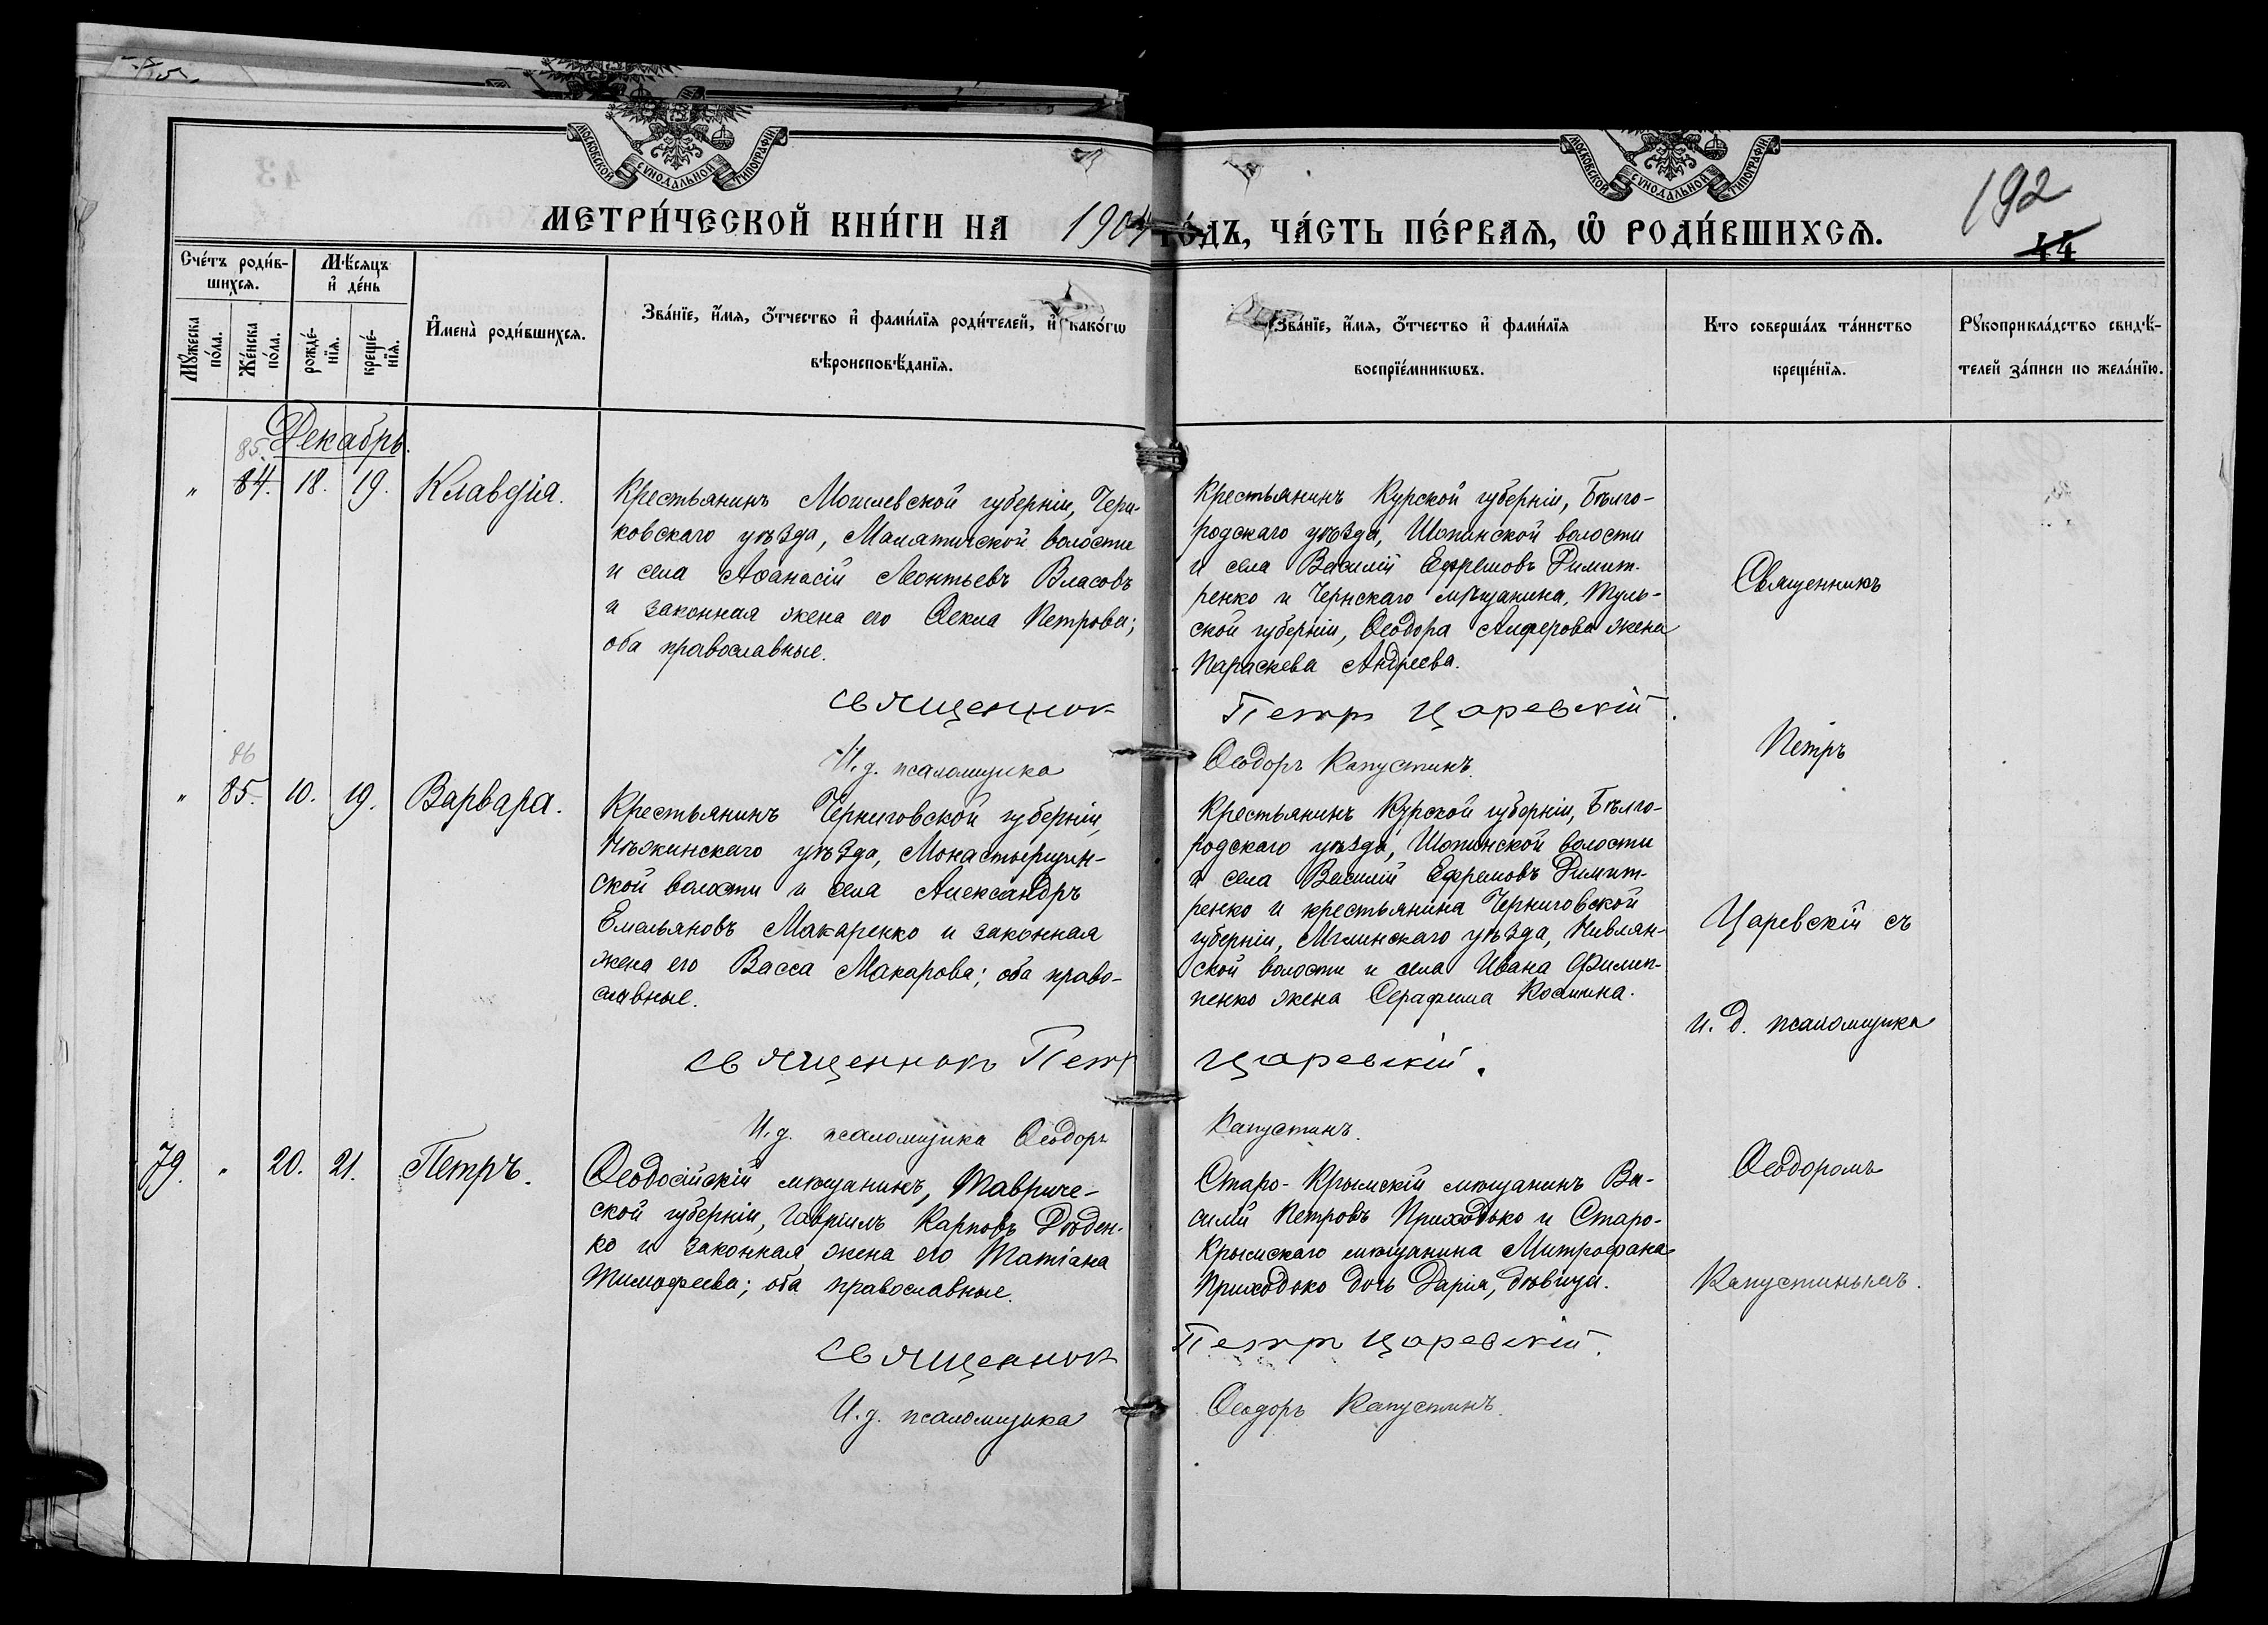 МОСКОВСКОЙ СУНОДАЛЬНОЙ ТИПОГРАФІИ
МОСКОВСКОЙ СУНОДАЛЬНОЙ ТИПОГРАФІИ
МЕТРИ́ЧЕСКОЙ КНИ́ГИ НА 1904 ГО́ДЪ, ЧА́СТЬ ПЕ́РВАЯ, Ѡ РОДИ́ВШИХСЯ.
192
44
Сче́тъ роди́в-
шихся.
Мѣ́сяцъ
и҆ де́нь
Мꙋ́жеска
по́ла.
Же́нска
по́ла.
рожде́-
нїя.
креще́-
нїя.
И҆мена̀ роди́вшихся.
Зва́нїе, и҆́мя, ѻ҆́тчество и҆ фами́лїя роди́телей, и҆ како́гѡ
вѣроисповѣ́данїя.
Зва́нїе, и҆́мя, ѻ҆́тчество и҆ фами́лїя
воспрїе́мникѡвъ.
Кто соверша́лъ та́инство
креще́нїя.
Рꙋкоприкла́дство свидѣ́-
телей за́писи по жела́нїю.
Декабрь.
85.
" 84. 18. 19. Клавдія.
Крестьянинъ Могилевской губерніи, Чери-
ковскаго уѣзда, Малятичской волости
и села Аѳанасій Леонтьевъ Власовъ
и законная жена его Ѳекла Петрова;
оба православные.
Крестьянинъ Курской губерніи, Бѣлго-
родскаго уѣзда, Шопинской волости
и села Василій Ефремовъ Димит-
ренко и Чернскаго мѣщанина, Туль-
ской губерніи, Ѳеодора Алферова жена
Параскева Андреева.
священник Петр Царевскій.
И.д. псаломщика Ѳеодоръ Капустинъ.
86
" 85. 10. 19. Варвара.
Крестьянинъ Черниговской губерніи,
Нѣжинскаго уѣзда, Монастырищен-
ской волости и села Александръ
Емельяновъ Макаренко и законная
жена его Васса Макарова; оба право-
славные.
Крестьянинъ Курской губерніи, Бѣлго-
родскаго уѣзда, Шопинской волости
и села Василій Ефремовъ Димит-
ренко и крестьянина Черниговской
губерніи, Мглинскаго уѣзда, Нивлян-
ской волости и села Ивана Филип-
пенко жена Серафима Космина.
священникъ Петр Царевскій.
И.д. псаломщика Ѳеодоръ Капустинъ.
79. " 20. 21. Петръ.
Ѳеодосійскій мѣщанинъ, Тавриче-
ской губерніи, Гавріилъ Карповъ Дѣден-
ко и законная жена его Татіана
Тимофеева; оба православные.
Старо-Крымскій мѣщанинъ Ва-
силій Петровъ Приходько и Старо-
Крымскаго мѣщанина Митрофана
Приходько дочь Дарія, дѣвица.
священник Петръ Царевскій.
И.д. псаломщика Ѳеодоръ Капустинъ.
Священникъ
Петръ
Царевскій съ
и. д. псаломщика
Ѳеодоромъ
Капустинымъ.